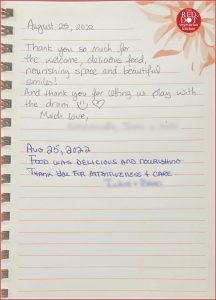 RED
BOWL
vegetarian
kitchen
August 25, 2022
Thank you so much for
the welcome, delicious food,
nourishing space and beautiful
smiles!
And thank you for letting us play with
the drum
Much love,
AUG 25, 2022
FOOD WAS DELICIOUS AND NOURISHING
THANK YOU FOR ATTENTIVENESS & CARE